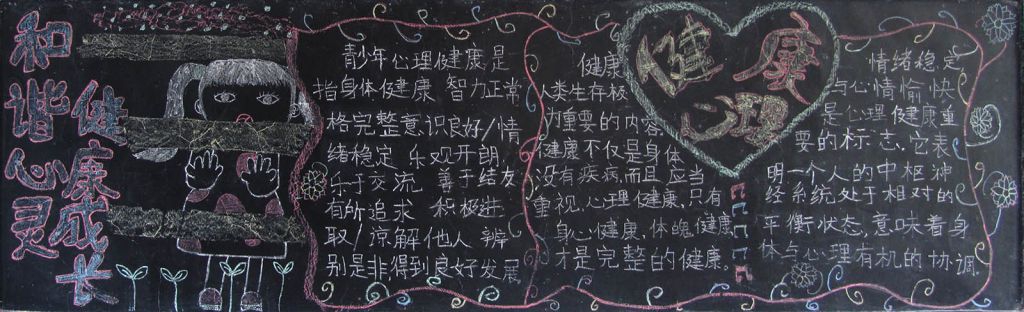 和谐心灵
健康成长
青少年心理健康是
指身体健康 智力正常
格完整意识良好/情
绪稳定 乐观开朗
乐于交流 善于结友
有所追求 积极进
取/谅解他人 辨
别是非得到良好发展
健康
人类生存极
为重要的内容
健康不仅是身体
没有疾病,而且应当
重视心理健康,只有
身心健康、体魄健康
才是完整的健康。
健康
心理
情绪稳定
与心情愉快
是心理健康重
要的标志,它表
明一个人的中枢神
经系统处于相对的
平衡状态,意味着身
体与心理有机的协调